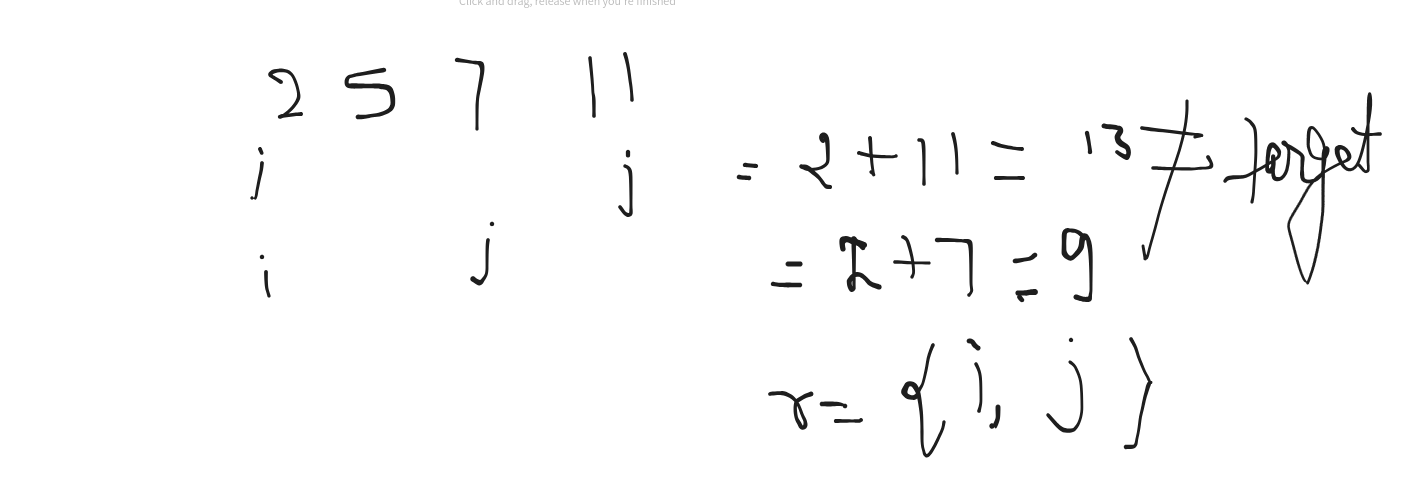 Click and drag, release when you're finished
2 5 7 11
i j = 2 + 11 = 13 ≠ target
i j = 2 + 7 = 9
r = { i, j }